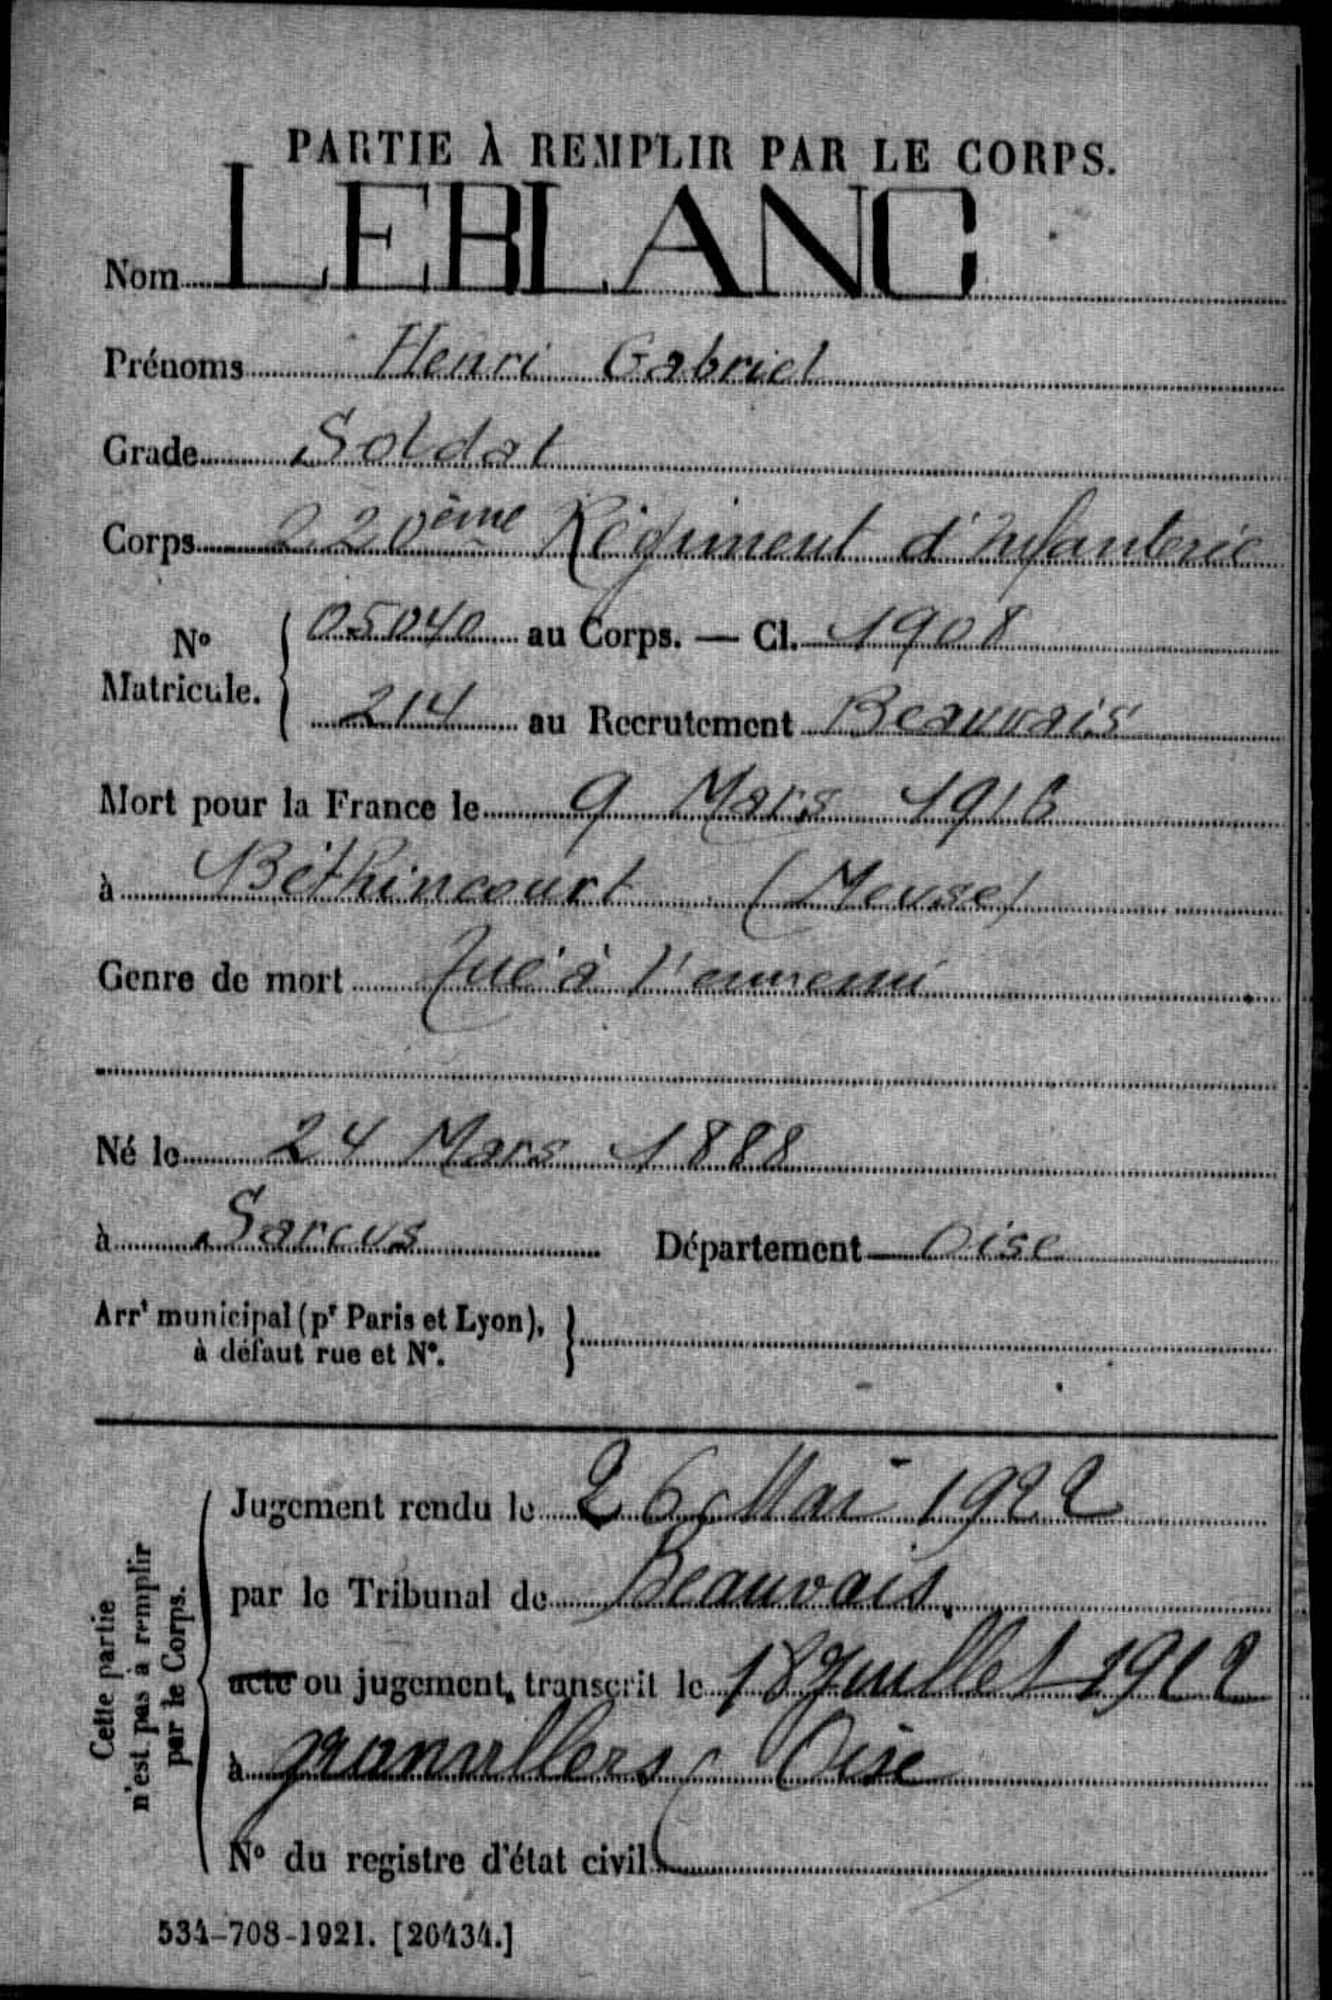 PARTIE À REMPLIR PAR LE CORPS.
Nom LEBLANC
Prénoms Henri Gabriel
Grade Soldat
Corps 220ème Régiment d'Infanterie
N° Matricule. 05040 au Corps. — Cl. 1908
214 au Recrutement Beauvais
Mort pour la France le 9 Mars 1916
à Béthincourt (Meuse)
Genre de mort Tué à l'ennemi
Né le 24 Mars 1888
à Sarcus Département Oise
Arrt municipal (pr Paris et Lyon),
à défaut rue et N°.
Cette partie
n'est pas à remplir
par le Corps.
Jugement rendu le 26 Mai 1922
par le Tribunal de Beauvais.
acte ou jugement, transcrit le 18 Juillet 1922
à granvillers Oise
N° du registre d'état civil
534-708-1921. [26434.]